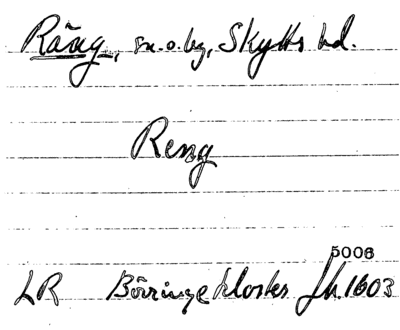 Räng, sn.o.by, Skytts hd.
Reng
5006
LR Börringekloster Jb. 1603